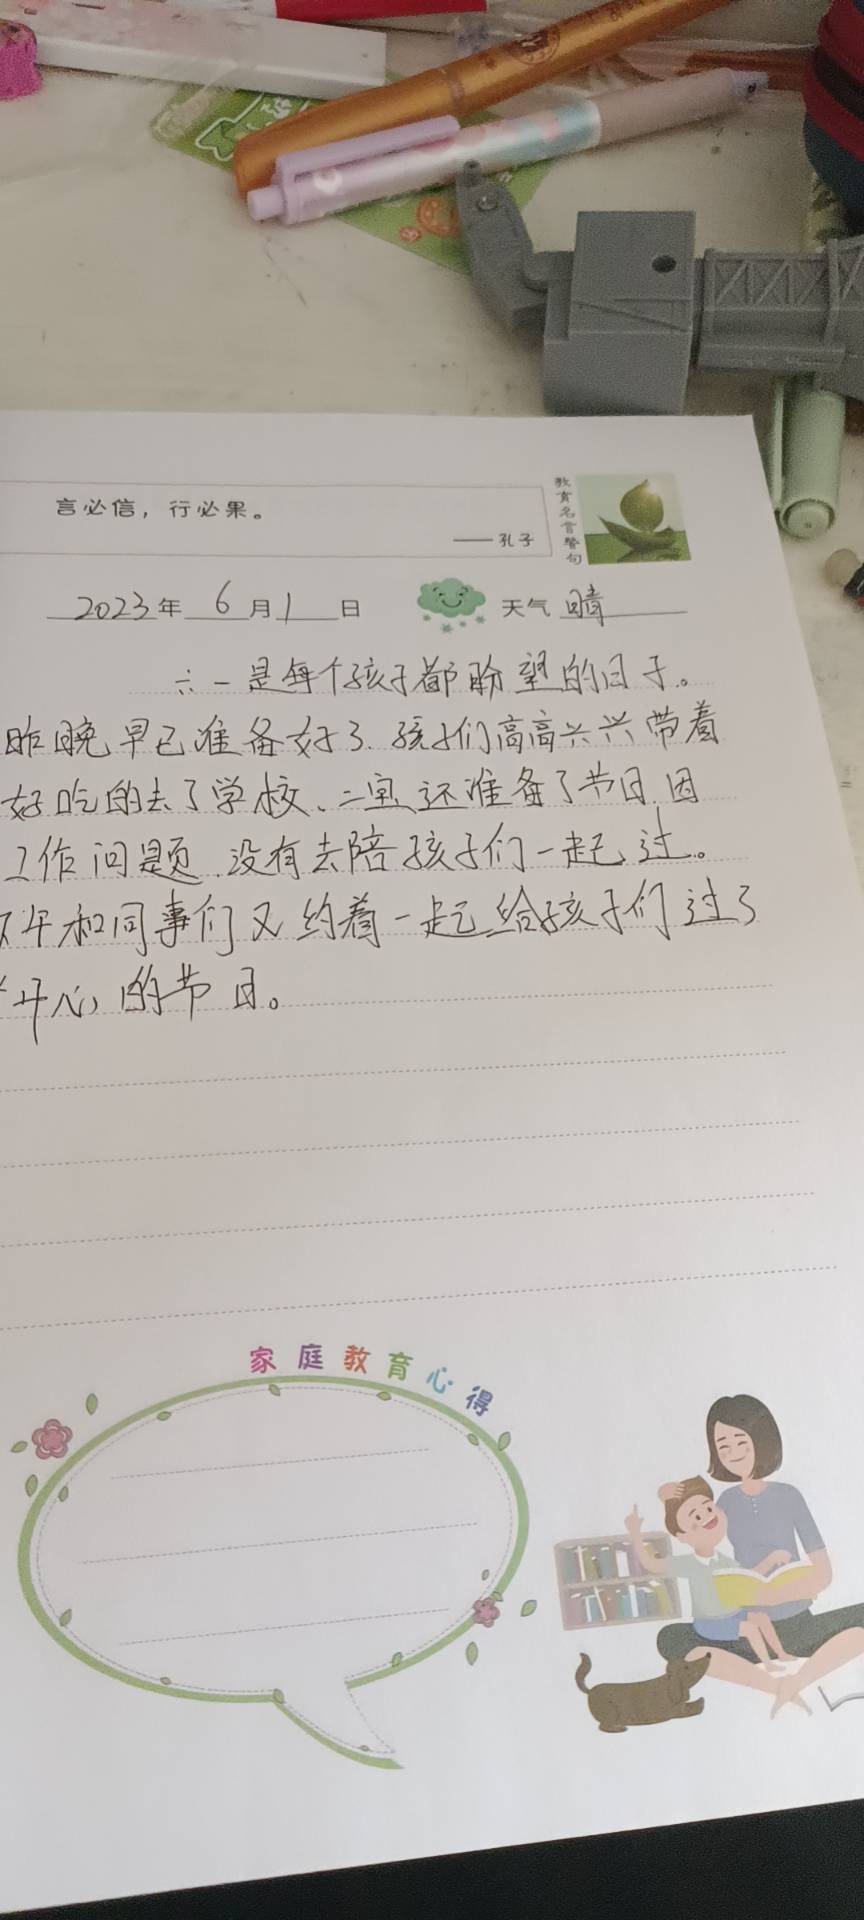 言必信，行必果。
——孔子
教育名言警句
2023年6月1日 天气 晴
六一是每个孩子都盼望的日子。
昨晚早已准备好了.孩子们高高兴兴带着
好吃的去了学校、二宝还准备了节目.因
工作问题.没有去陪孩子们一起过。
下午和同事们又约着一起给孩子们过了
开心的节日。
家庭教育心得